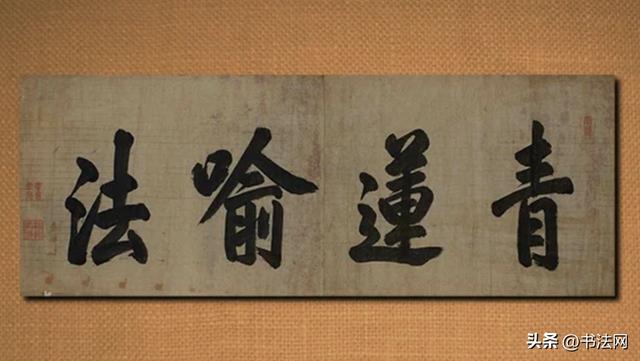 青蓮喻法
头条 @书法网